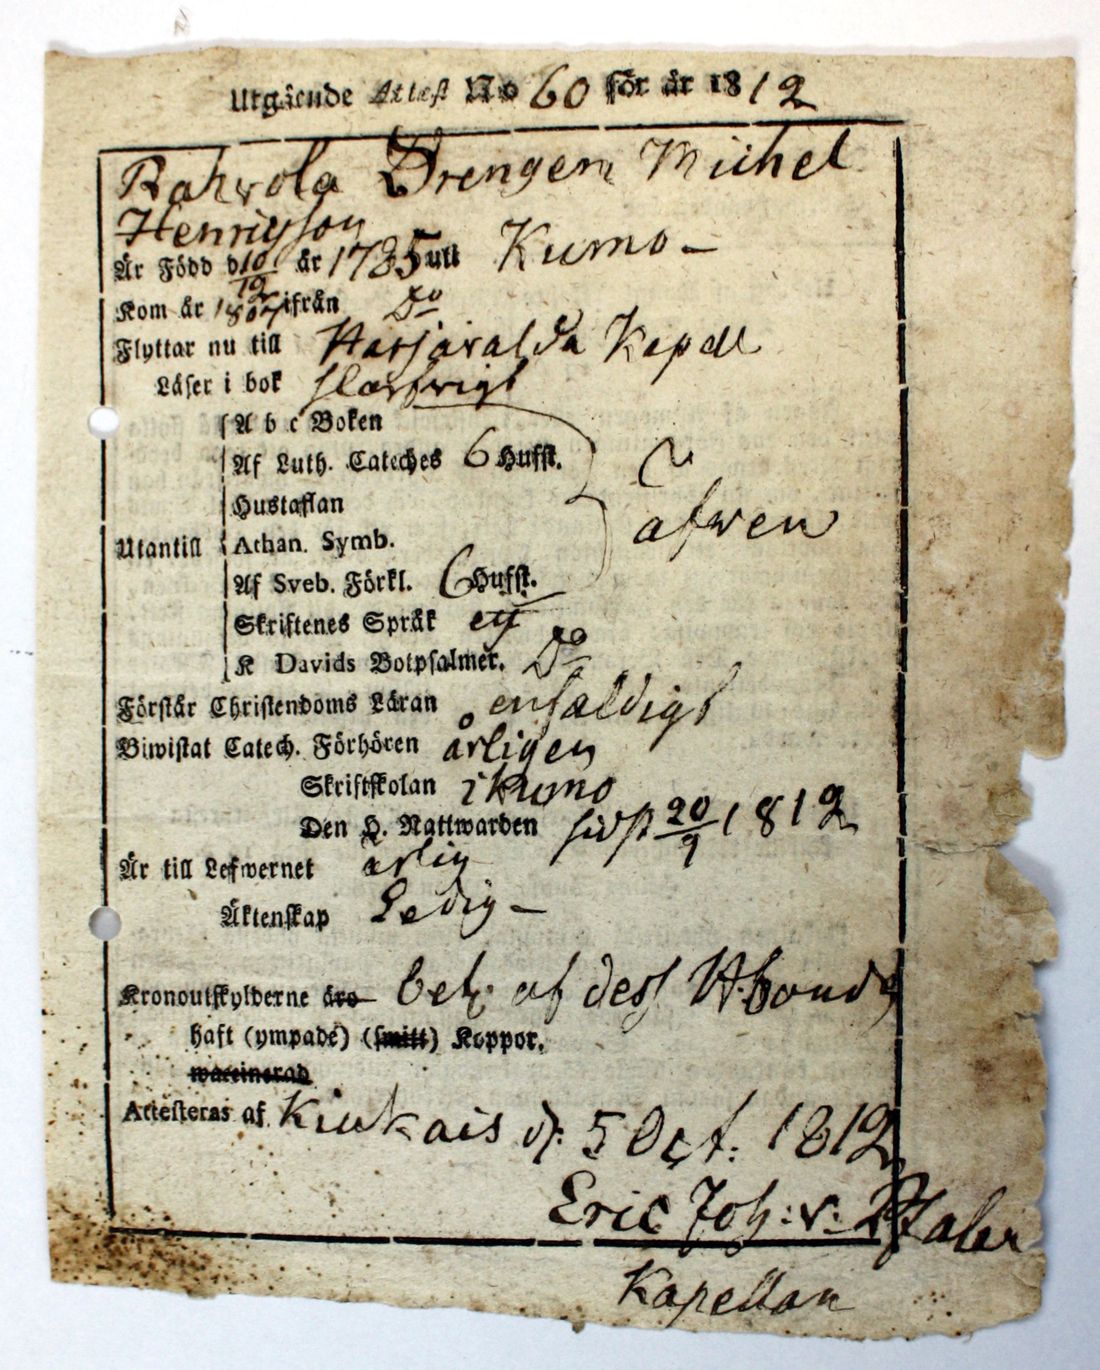 Utgående Attest No 60 för år 1812
Rahvola Drengen Michel
Henricsson
Är Född d 10/12 år 1785 uti Kumo —
Kom år 1807 ifrån Do
Flyttar nu till Harjavalda Kapell
Läser i bok slarfwigt
A b c Boken
Af Luth. Cateches 6 Hufst.
Hustaflan
Utantill Athan. Symb. äfwen
Af Sveb. Förkl. 6 Hufst.
Skriftenes Språk ej
K Davids Botpsalmer. Do
Förstår Christendoms Läran enfaldigt
Biwistat Catech. Förhören årligen
Skriftskolan i Kumo
Den H. Nattwarden sidst 20/9 1812
Är till Lefwernet ärlig
Äktenskap Ledig —
Kronoutskylderne äro bet. af dess Husbonde
haft (ympade) (smitt) Koppor.
waccinerad
Attesteras af Kiukais d. 5 Oct. 1812
Eric Joh: v: Pfaler
Kapellan